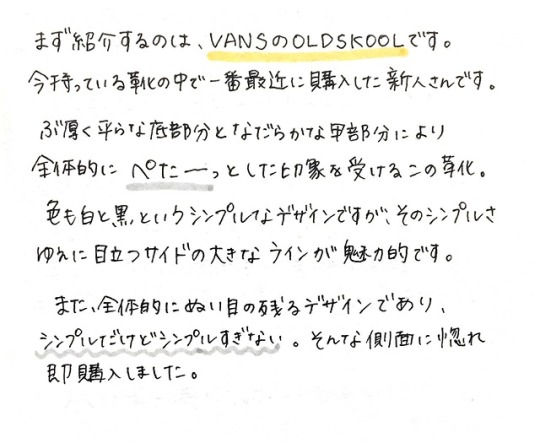 まず紹介するのは、VANSのOLDSKOOLです。
今持っている靴の中で一番最近に購入した新人さんです。
ぶ厚く平らな底部分となだらかな甲部分により
全体的にぺたーっとした印象を受けるこの靴。
色も白と黒というシンプルなデザインですが、そのシンプルさ
ゆえに目立つサイドの大きなラインが魅力的です。
また、全体的にぬい目の残るデザインであり、
シンプルだけどシンプルすぎない。そんな側面に惚れ
即購入しました。